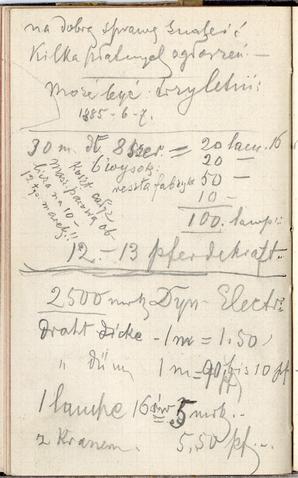 na dobrą sprawę znaleść
Kilka ptatnych ogłoszeń —
może być trzyletni:
1885 - 6 - 7.
30 m. dł 8 szer. = 20 lam. 16
6 wysok: 20 —
reszta fabryk 50 —
10 —
100. lamp:
Koszt całej
masz. parowa ob
licza na 10 -
12 tys. marek!!
12 - 13 pferdekraft.
2500 mrk Dyn - Electr:
Draht dicke - 1 m = 1.50
„ dün 1 m = bis 10 pf
1 lampe 16 5 mrk. -
z Kranem. 5,50 pf. -